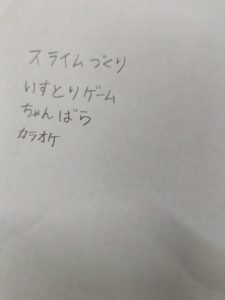 スライムづくり
いすとりゲーム
ちゃんばら
カラオケ